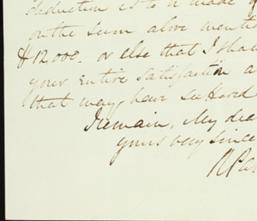 deduction is to be made of
on the sum above mentio
$12.000. or else that I shall
your entire satisfaction a
that may have suffered
I remain, My dea
yours very since
R Pa